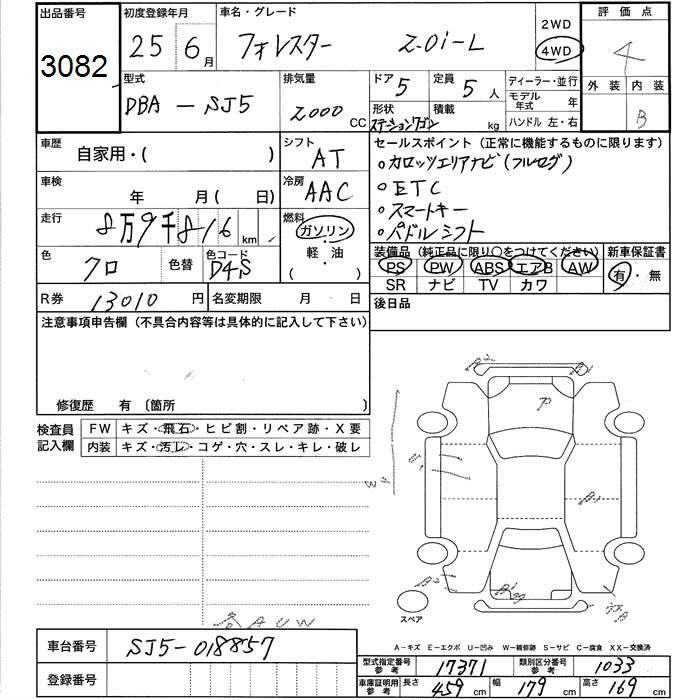 出品番号 初度登録年月 車名・グレード 評価点
3082 25 6月 フォレスター 2.0i-L 2WD 4WD 4
型式 排気量 ドア 5 定員 5人 ディーラー・並行 外装 内装
DBA-SJ5 2000 CC 形状 ステーションワゴン 積載 kg モデル年式 年 ハンドル 左・右 B
車歴 自家用・( ) シフト AT セールスポイント(正常に機能するものに限ります)
。カロッツエリアナビ(フルセグ)
車検 年 月(日) 冷房 AAC 。ETC
。スマートキー
走行 8万9千816km 燃料 ガソリン・軽・油 ( ) 。パドルシフト
色 クロ 色替 色コード D4S 装備品(純正品に限り〇をつけてください) 新車保証書
PS PW ABS エアB AW 有・無
SR ナビ TV カワ
R券 13010円 名変期限 月 日 後日品
注意事項申告欄(不具合内容等は具体的に記入して下さい)
修復歴 有 〔箇所 〕
検査員記入欄 FW キズ・飛石・ヒビ割・リペア跡・X要
内装 キズ・汚レ・コゲ・穴・スレ・キレ・破レ
ア
スペア
AUW
A-キズ E-エクボ U-凹み W-補修跡 S-サビ C-腐食 XX-交換済
車台番号 SJ5-018857
型式指定番号 参考 17371 類別区分番号 参考 1033
登録番号 車庫証明用 参考 長さ 459cm 幅 179cm 高さ 169cm